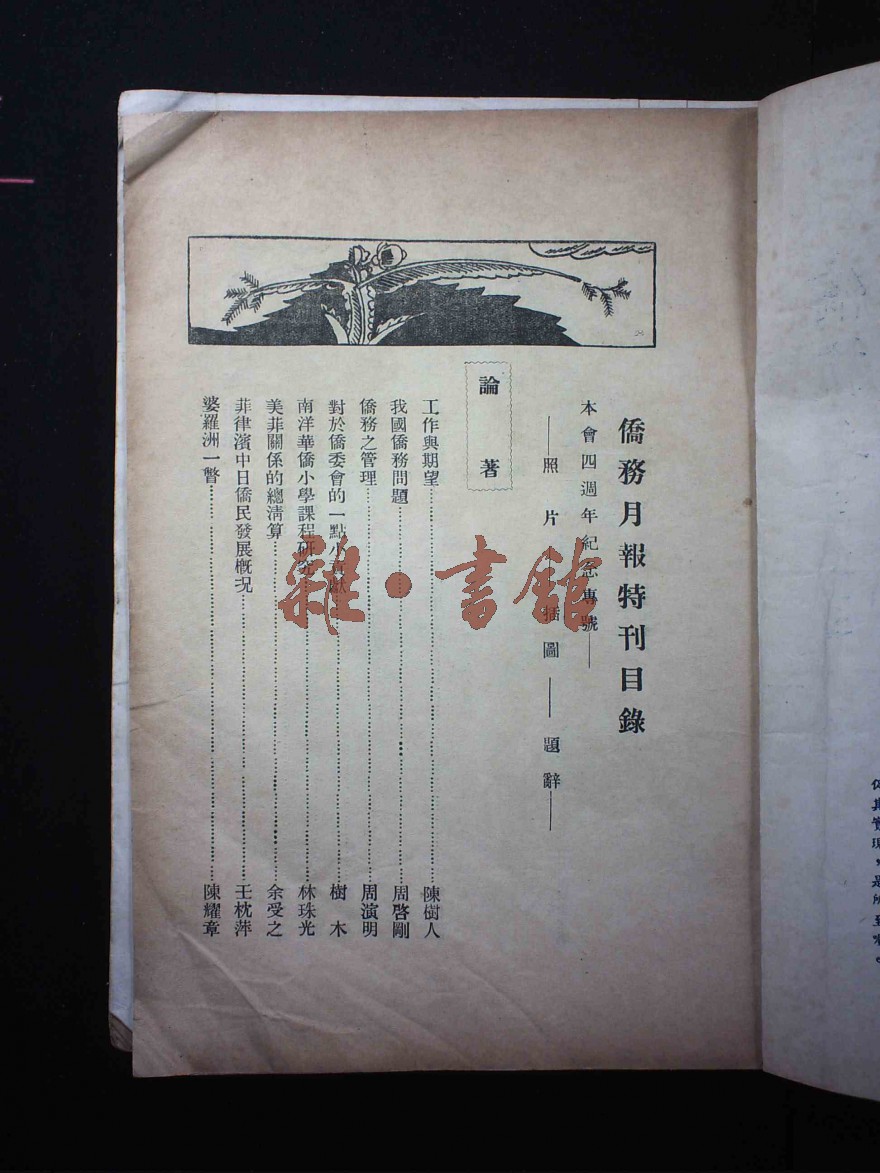 僑務月報特刊目錄
本會四週年紀念專號——
——照片　插圖——題辭——
論著
工作與期望……陳樹人
我國僑務問題……周啓剛
僑務之管理……周演明
對於僑委會的一點小貢獻……樹木
南洋華僑小學課程研究……林珠光
美菲關係的總清算……余受之
菲律濱中日僑民發展概況……王枕萍
婆羅洲一瞥……陳耀章
雜·書館